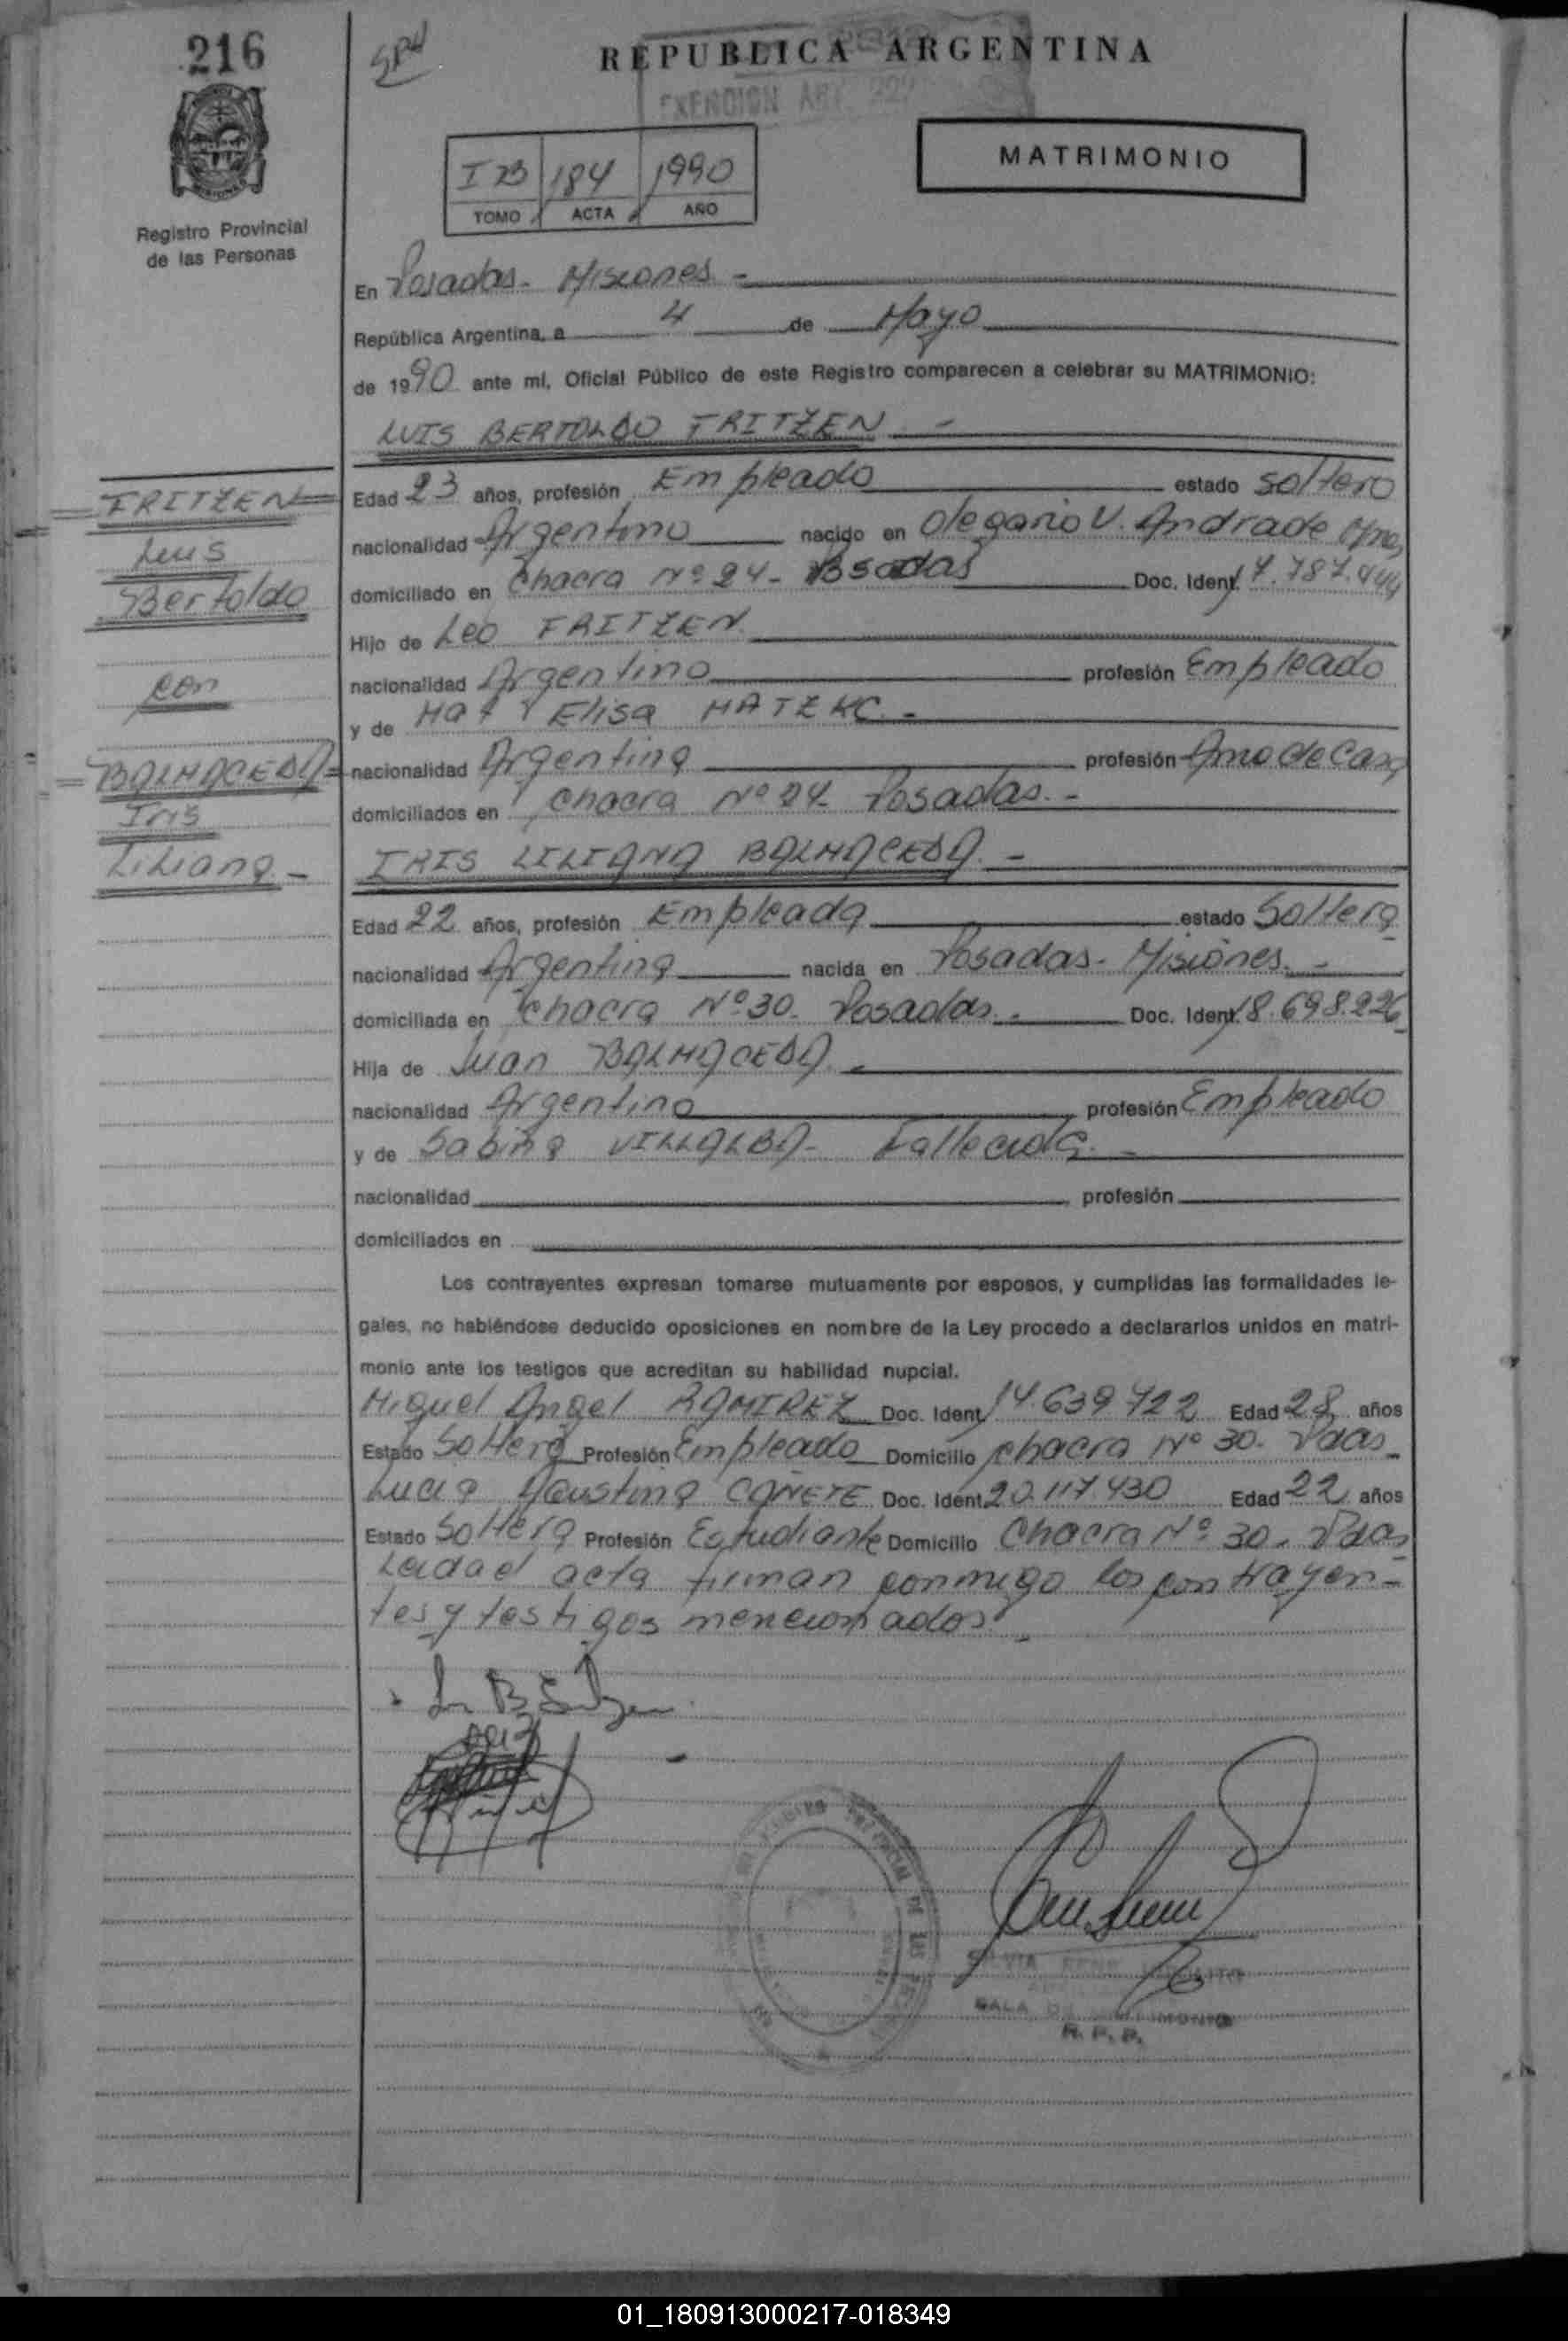 216
REPUBLICA ARGENTINA
EXENCION ART. 222
MATRIMONIO
I B 184 1990
TOMO ACTA AÑO
Registro Provincial
de las Personas
En Posadas - Misiones -
República Argentina, a 4 de Mayo
de 1990 ante mí, Oficial Público de este Registro comparecen a celebrar su MATRIMONIO:
LUIS BERTOLDO FRITZEN -
FRITZEN
Luis
Bertoldo
con
BALMACEDA
Iris
Liliana -
Edad 23 años, profesión Empleado estado Soltero
nacionalidad Argentino nacido en Olegario V. Andrade Mnes
domiciliado en Chacra Nº 24 - Posadas Doc. Ident. 17.787.444
Hijo de Leo FRITZEN
nacionalidad Argentino profesión Empleado
y de Elisa -
nacionalidad Argentina profesión Ama de Casa
domiciliados en Chacra Nº 24 - Posadas. -
IRIS LILIANA BALMACEDA. -
Edad 22 años, profesión Empleada estado Soltera
nacionalidad Argentina nacida en Posadas - Misiones. -
domiciliada en Chacra Nº 30 - Posadas. - Doc. Ident. 18.698.226
Hija de Juan BALMACEDA. -
nacionalidad Argentino profesión Empleado
y de Sabina VILLALBA - Fallecida. -
nacionalidad profesión
domiciliados en
Los contrayentes expresan tomarse mutuamente por esposos, y cumplidas las formalidades le-
gales, no habiéndose deducido oposiciones en nombre de la Ley procedo a declararlos unidos en matri-
monio ante los testigos que acreditan su habilidad nupcial.
Miguel Angel RAMIREZ Doc. Ident. 14.639.722 Edad 28 años
Estado Soltero Profesión Empleado Domicilio Chacra Nº 30 - Pdas -
Lucia Agustina CAÑETE Doc. Ident. 20.117.430 Edad 22 años
Estado Soltera Profesión Estudiante Domicilio Chacra Nº 30. Pdas
Leida el acta firman conmigo los contrayen-
tes y testigos mencionados. -
SALA DE MATRIMONIO
R. P. P.
01_180913000217-018349